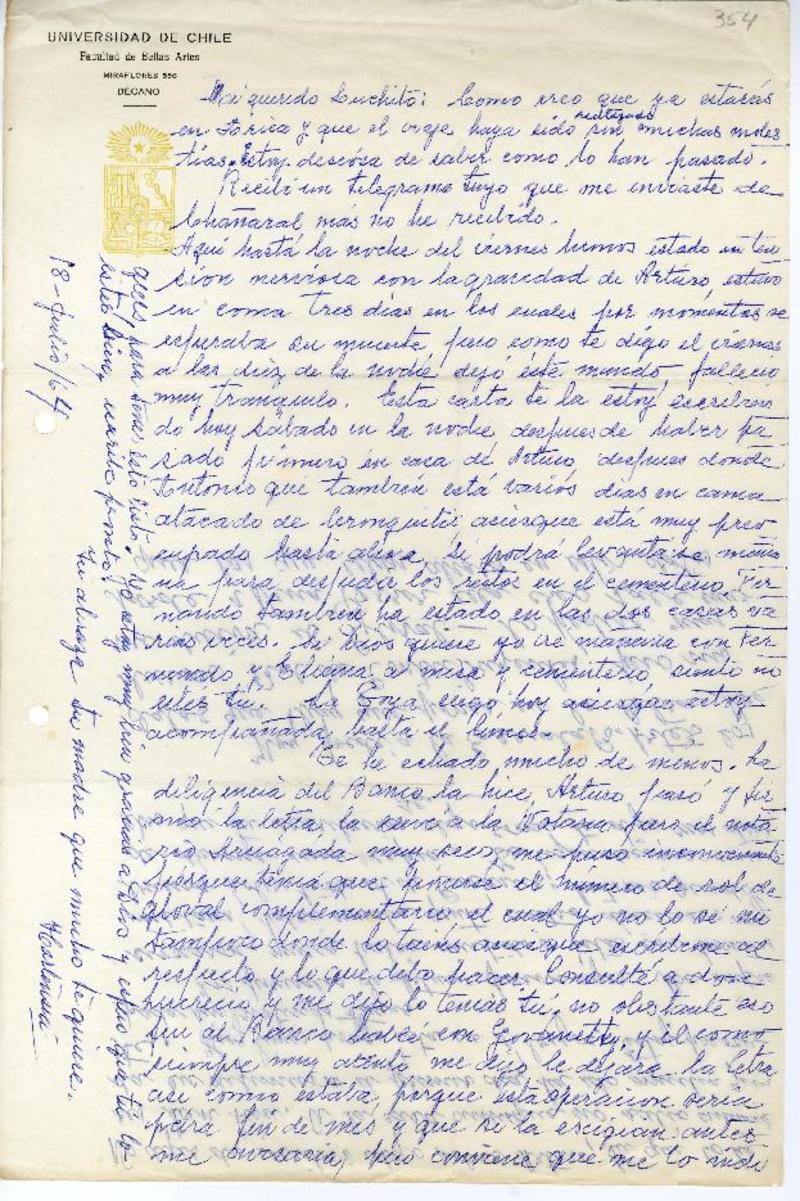 354
UNIVERSIDAD DE CHILE
Facultad de Bellas Artes
MIRAFLORES 556
DECANO
Mi querido Luchito: Como creo que ya estarás
en Arica y que el viaje haya sido realizado sin muchas moles
tias. Estoy deseosa de saber como lo han pasado.
Recibí un telegrama tuyo que me enviaste de
Chañaral más no he recibido.
Aquí hasta la noche del viernes hemos estado en ten
sion nerviosa con la gravedad de Arturo, estuvo
en coma tres dias en los cuales por momentos se
esperaba su muerte, pero como te digo el viernes
a las diez de la noche dejó este mundo, fallecio
muy tranquilo. Esta carta te la estoy escribien
do hoy Sábado en la noche despues de haber pa
sado primero en casa de Arturo, despues donde
Antonio que tambien está varios dias en cama
atacado de bronquitis asiesque está muy preo
cupado hasta ahora, si podrá levantarse maña
na para despedir los restos en el cementerio. Fer
nando tambien ha estado en las dos casas va
rias veces. Si Dios quiere yo iré mañana con Fer
nando y Eliana a misa y cementerio, siento no
estés tú. La Goya llegó hoy asiesque estoy
acompañada hasta el lunes.
Te he echado mucho de menos. La
diligencia del Banco la hice, Arturo pasó y fir
mó la letra, la llevé a la Notaria pero el nota
rio muy seco, me puso inconveniente
porque tenia que ponerse el número de rol de
global complementario el cual yo no lo sé ni
tampoco donde lo tienes asiesque escribeme al
respecto y lo que debo hacer. Consulté a don
y me dijo lo tenias tú, no obstante eso
fui al Banco hablé con y él como
siempre muy atento me dijo le dejara la letra
asi como estaba, porque esta operacion seria
para fin de mes y que si la exigian antes
me avisaria, pero conviene que me lo indi
ques para tener esto listo. Yo estoy muy bien gracias a Dios y espero que tú lo
estés bien, escribe pronto.
Te abraza tu madre que mucho te quiere.
Hortensia
18-Julio/64